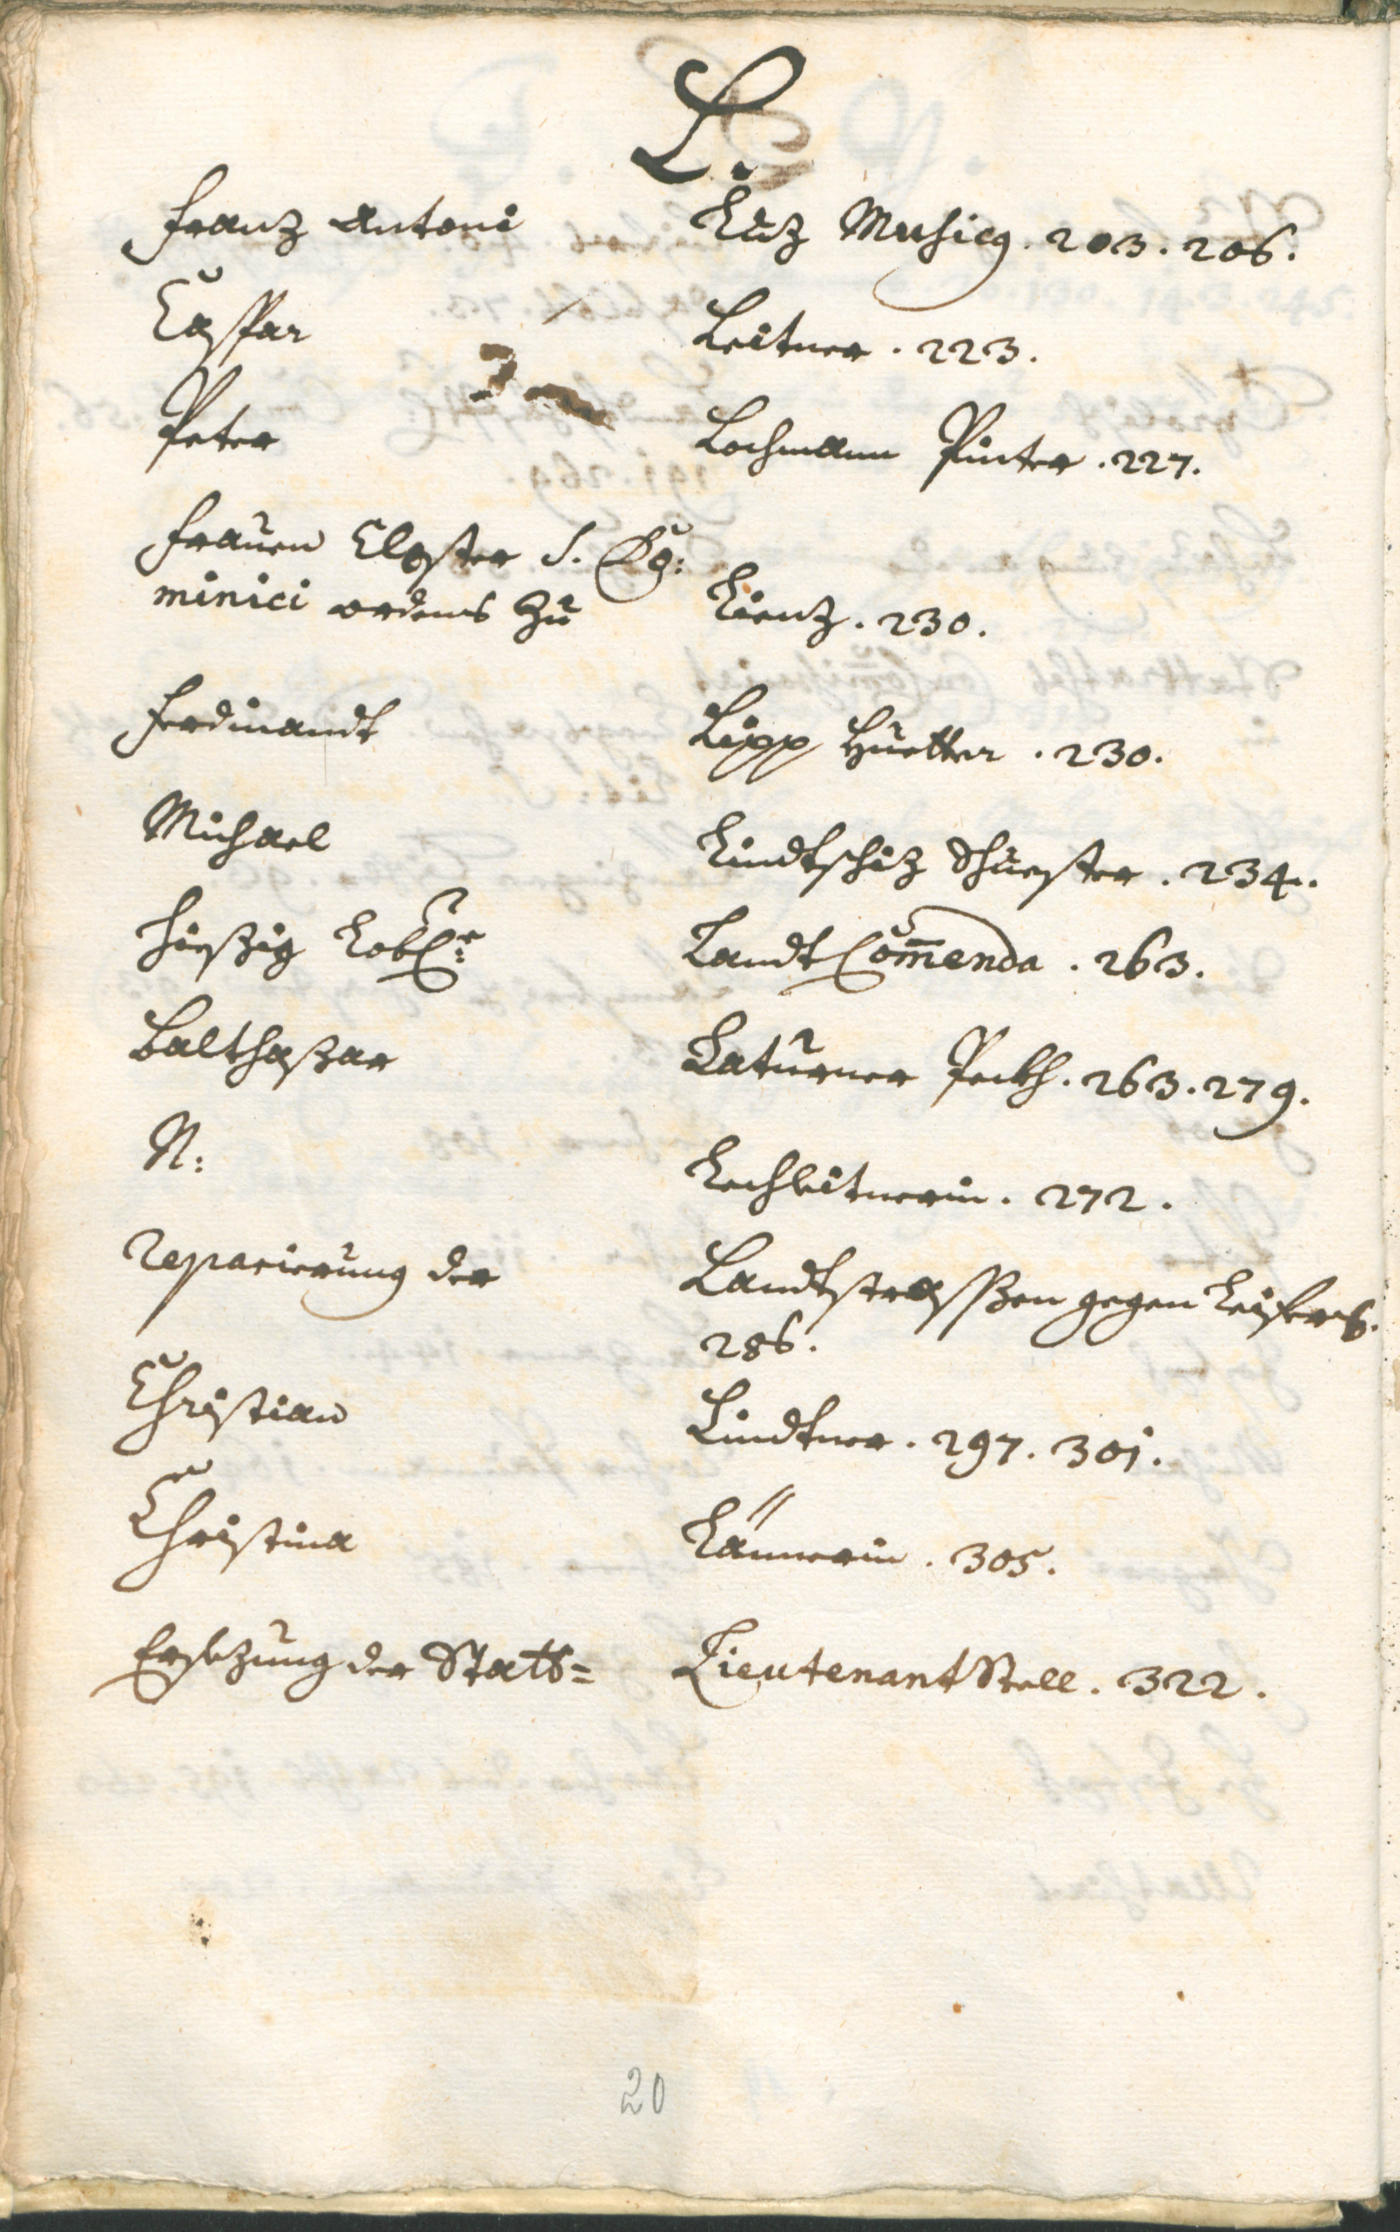 L.
Franz Antoni Luz Musicq. 203. 206.
Caspar Leitner . 223.
Peter Lochmann Pinter . 227.
Frauen Closter S. Do:
minici ordens zu Lienz . 230.
Ferdinandt Lipp Huetter . 230.
Michael Lindtschiz Schuester . 234.
hießig Lobl: Landt Com̅enda . 263.
Balthaßar Laturner Peckh . 263. 279.
N: Lechleitnerin . 272.
reparierung der Landtstrassen gegen Leifers.
286.
Christian Lindtner . 297. 301.
Christina Lännerin . 305.
Ersezung der Statt= Lieutenant Stell . 322.
20